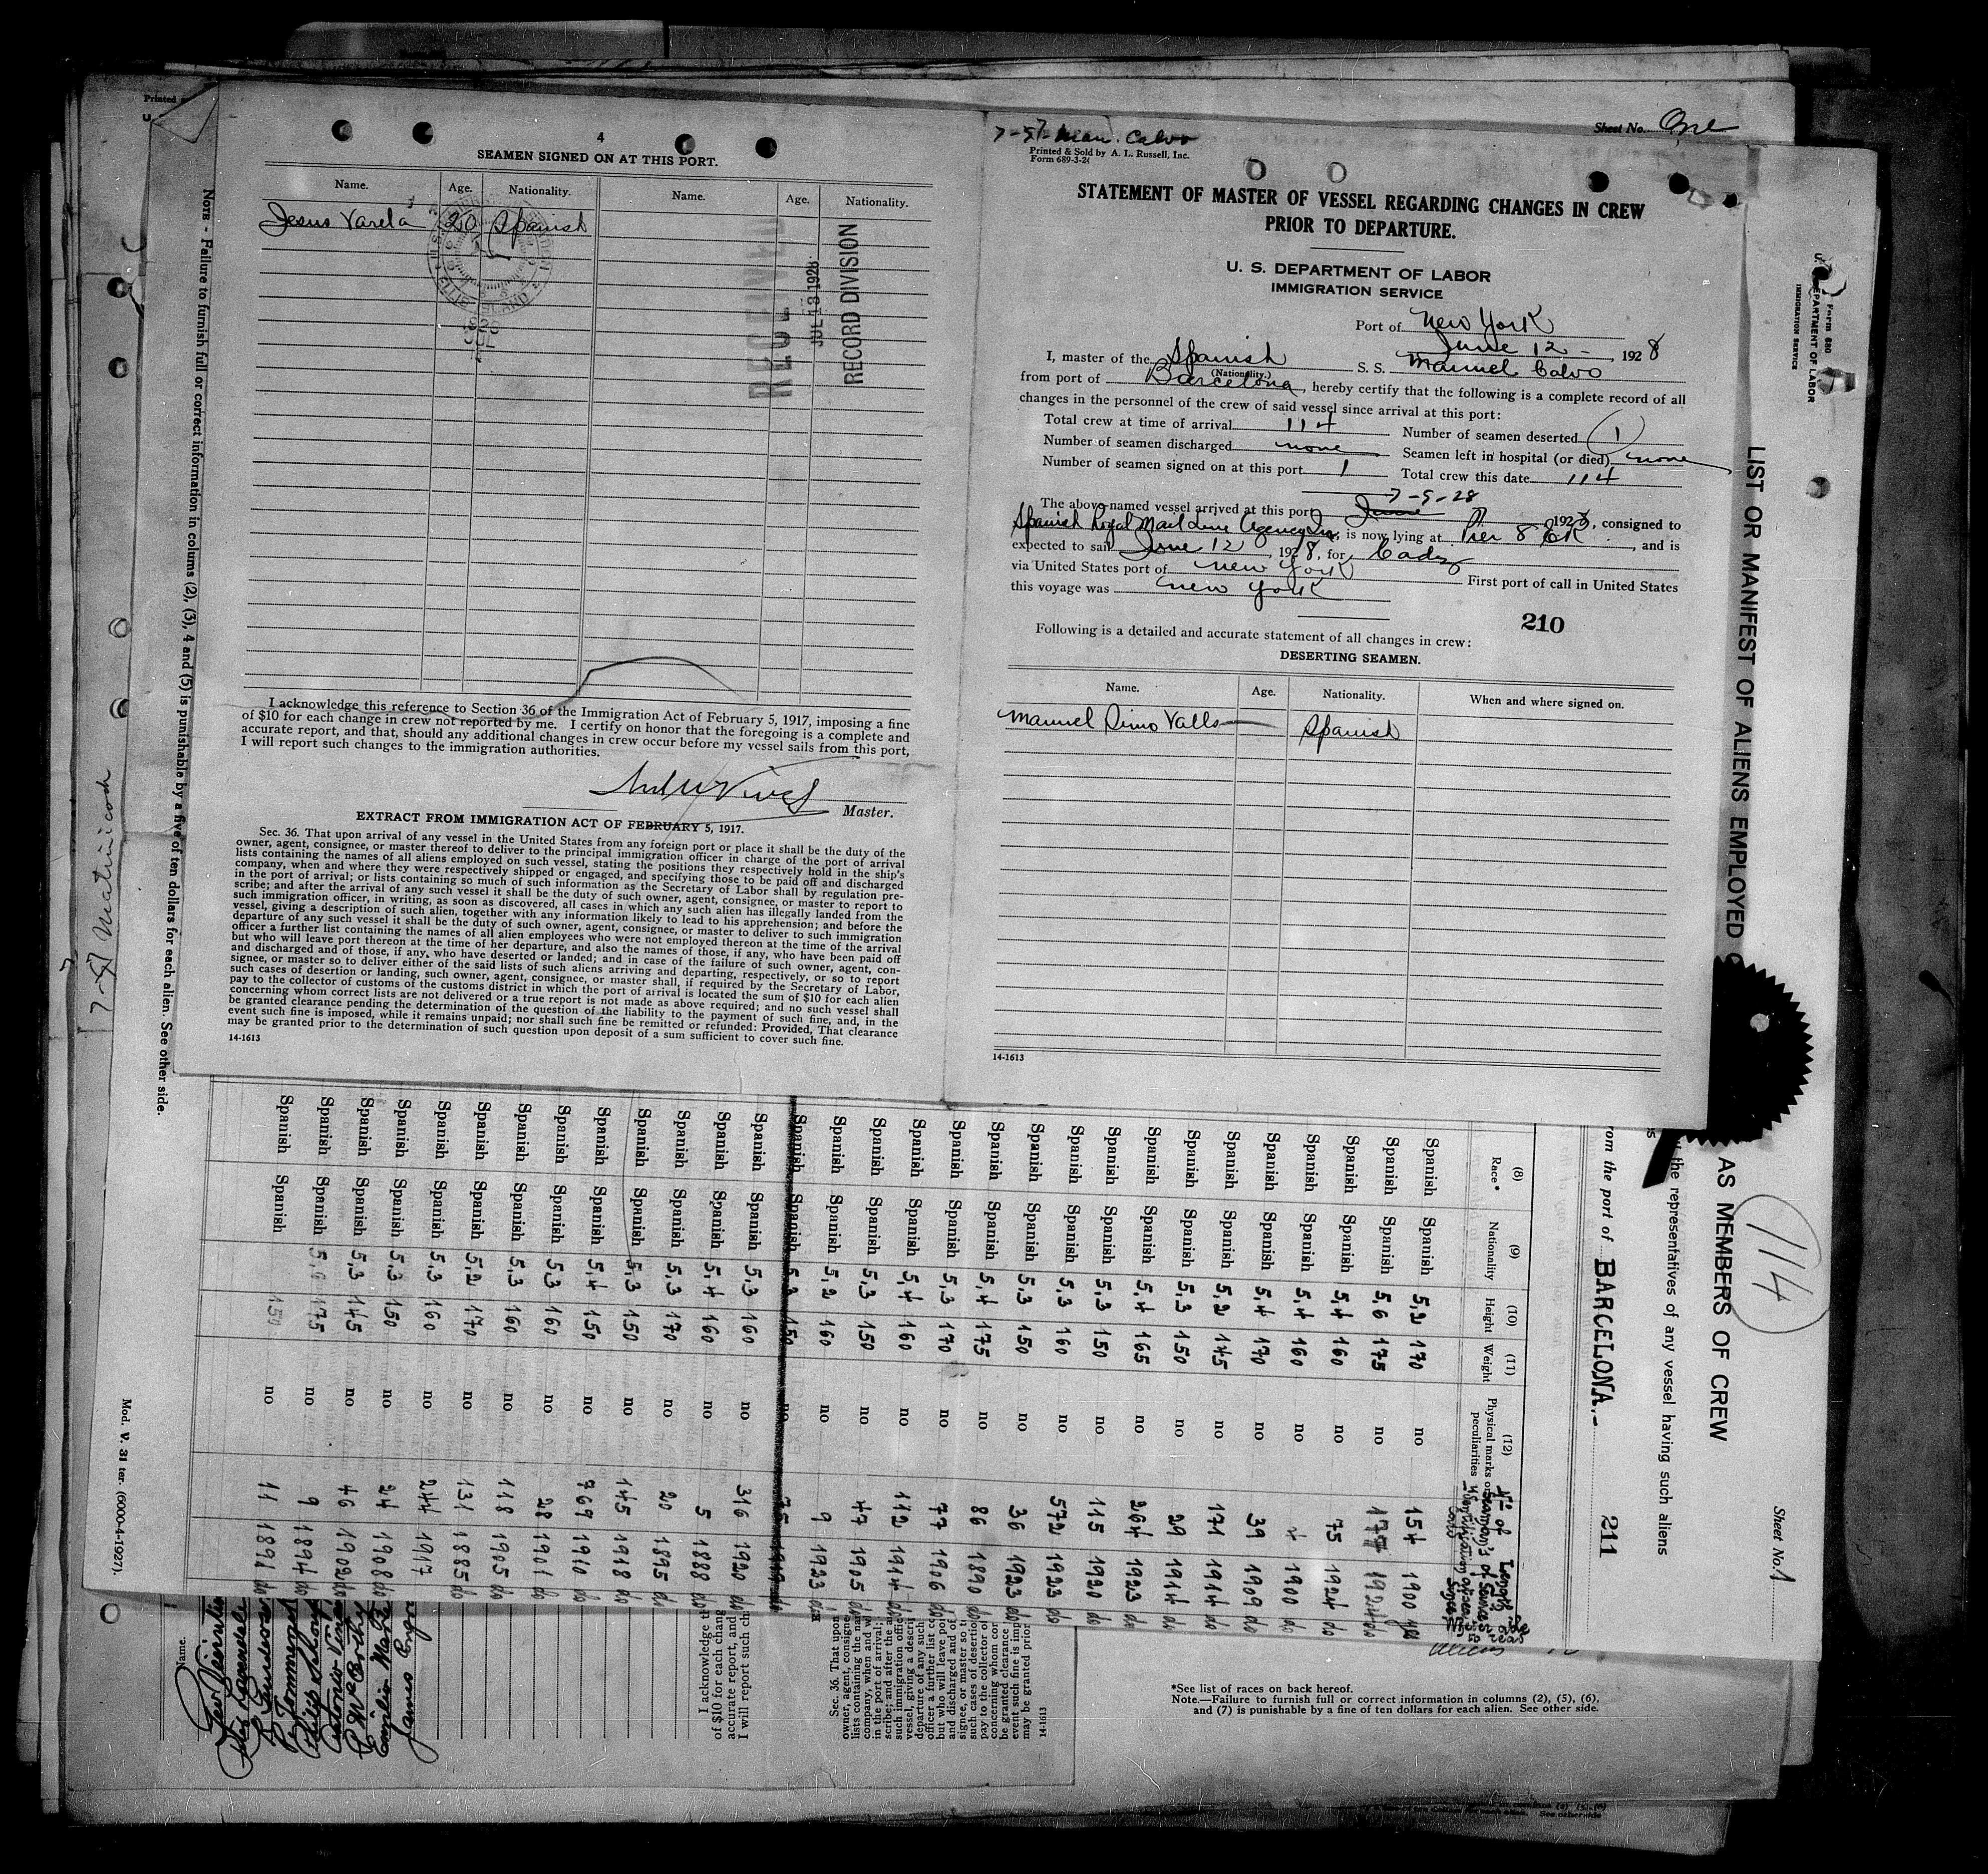 4
SEAMEN SIGNED ON AT THIS PORT.
Name. Age. Nationality. Name. Age. Nationality.
Jesus Varela 20 Spanish
RECEIVED
JUL 13 1928
RECORD DIVISION
I acknowledge this reference to Section 36 of the Immigration Act of February 5, 1917, imposing a fine
of $10 for each change in crew not reported by me. I certify on honor that the foregoing is a complete and
accurate report, and that, should any additional changes in crew occur before my vessel sails from this port,
I will report such changes to the immigration authorities.
Master.
EXTRACT FROM IMMIGRATION ACT OF FEBRUARY 5, 1917.
Sec. 36. That upon arrival of any vessel in the United States from any foreign port or place it shall be the duty of the
owner, agent, consignee, or master thereof to deliver to the principal immigration officer in charge of the port of arrival
lists containing the names of all aliens employed on such vessel, stating the positions they respectively hold in the ship's
company, when and where they were respectively shipped or engaged, and specifying those to be paid off and discharged
in the port of arrival; or lists containing so much of such information as the Secretary of Labor shall by regulation pre-
scribe; and after the arrival of any such vessel it shall be the duty of such owner, agent, consignee, or master to report to
such immigration officer, in writing, as soon as discovered, all cases in which any such alien has illegally landed from the
vessel, giving a description of such alien, together with any information likely to lead to his apprehension; and before the
departure of any such vessel it shall be the duty of such owner, agent, consignee, or master to deliver to such immigration
officer a further list containing the names of all alien employees who were not employed thereon at the time of the arrival
but who will leave port thereon at the time of her departure, and also the names of those, if any, who have been paid off
and discharged and of those, if any, who have deserted or landed; and in case of the failure of such owner, agent, con-
signee, or master so to deliver either of the said lists of such aliens arriving and departing, respectively, or so to report
such cases of desertion or landing, such owner, agent, consignee, or master shall, if required by the Secretary of Labor,
pay to the collector of customs of the customs district in which the port of arrival is located the sum of $10 for each alien
concerning whom correct lists are not delivered or a true report is not made as above required; and no such vessel shall
be granted clearance pending the determination of the question of the liability to the payment of such fine, and, in the
event such fine is imposed, while it remains unpaid; nor shall such fine be remitted or refunded: Provided, That clearance
may be granted prior to the determination of such question upon deposit of a sum sufficient to cover such fine.
14-1613
Man. Calvo
Printed & Sold by A. L. Russell, Inc.
Form 689-3-2
STATEMENT OF MASTER OF VESSEL REGARDING CHANGES IN CREW
PRIOR TO DEPARTURE.
U. S. DEPARTMENT OF LABOR
IMMIGRATION SERVICE
Port of New York
June 12 -, 1928
I, master of the Spanish S. S. Manuel Calvo
(Nationality.)
from port of Barcelona, hereby certify that the following is a complete record of all
changes in the personnel of the crew of said vessel since arrival at this port:
Total crew at time of arrival 114 Number of seamen deserted 1
Number of seamen discharged none Seamen left in hospital (or died) none
Number of seamen signed on at this port 1 Total crew this date 114
7-5-28
The above-named vessel arrived at this port June, 192, consigned to
Spanish Royal Mail Line Agency Inc, is now lying at Pier 8 ER, and is
expected to sail June 12, 1928, for Cadiz
via United States port of New York First port of call in United States
this voyage was New York
210
Following is a detailed and accurate statement of all changes in crew:
DESERTING SEAMEN.
Name. Age. Nationality. When and where signed on.
Manuel Simo Valls Spanish
14-1613
Sheet No. One
Form 680
U. S. DEPARTMENT OF LABOR
IMMIGRATION SERVICE
LIST OR MANIFEST OF ALIENS EMPLOYED
AS MEMBERS OF CREW
114
the representatives of any vessel having such aliens
from the port of BARCELONA.-
211
Sheet No. 1
(8) Race* (9) Nationality (10) Height (11) Weight (12) Physical marks or peculiarities
Spanish Spanish 5,2 170 no 154 1900
Spanish Spanish 5,6 175 no 177 1924 do
Spanish Spanish 5,4 160 no 75 1924 do
Spanish Spanish 5,4 160 no 4 1900 do
Spanish Spanish 5,4 170 no 39 1909 do
Spanish Spanish 5,2 145 no 171 1914 do
Spanish Spanish 5,3 150 no 29 1914 do
Spanish Spanish 5,4 165 no 264 1923 do
Spanish Spanish 5,3 150 no 115 1920 do
Spanish Spanish 5,3 160 no 572 1923 do
Spanish Spanish 5,3 150 no 36 1923 do
Spanish Spanish 5,4 175 no 86 1890 do
Spanish Spanish 5,3 170 no 77 1906 do
Spanish Spanish 5,4 160 no 112 1914 do
Spanish Spanish 5,3 150 no 47 1905 do
Spanish Spanish 5,2 160 no 9 1923 do
Spanish Spanish 5,3 150 no
Spanish Spanish 5,3 160 no 316 1920 do
Spanish Spanish 5,4 160 no 5 1888 do
Spanish Spanish 5,3 170 no 20 1895 do
Spanish Spanish 5,3 150 no 145 1918 do
Spanish Spanish 5,4 150 no 769 1910 do
Spanish Spanish 5,3 160 no 28 1901 do
Spanish Spanish 5,3 160 no 118 1905 do
Spanish Spanish 5,2 170 no 131 1885 do
Spanish Spanish 5,3 160 no 244 1917
Spanish Spanish 5,3 150 no 24 1908 do
Spanish Spanish 5,3 145 no 46 1902 do
Spanish Spanish 5,6 175 no 9 1894 do
Spanish Spanish 150 no 11 1891 do
NOTE - Failure to furnish full or correct information in colums (2), (3), 4 and (5) is punishable by a five of ten dollars for each alien. See other side.
Mod. V. 31 ter. (6000-4-1927).
Name.
I acknowledge th
of $10 for each chang
accurate report, and
I will report such ch
Sec. 36. That upon
owner, agent, consigne
lists containing the nam
company, when and w
in the port of arrival;
scribe; and after the a
such immigration offic
vessel, giving a descri
departure of any such
officer a further list co
but who will leave por
and discharged and of
signee, or master so t
such cases of desertio
pay to the collector of
concerning whom cor
be granted clearance
event such fine is imp
may be granted prior
14-1613
*See list of races on back hereof.
Note.—Failure to furnish full or correct information in columns (2), (5), (6),
and (7) is punishable by a fine of ten dollars for each alien. See other side.